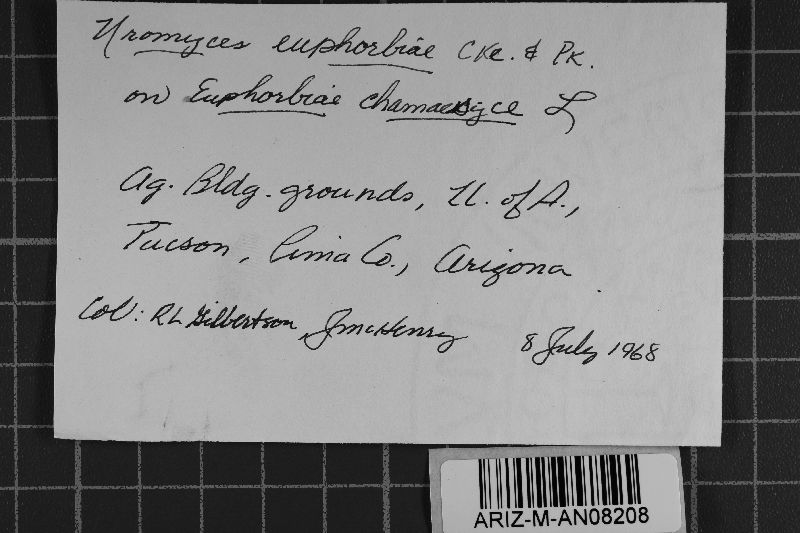 Uromyces euphorbiae Cke. & Pk.
on Euphorbiae chamaesyce L
Ag. Bldg. grounds, U. of A.,
Tucson, Pima Co., Arizona
Col: RL Gilbertson, J McHenry 8 July 1968
ARIZ-M-AN08208